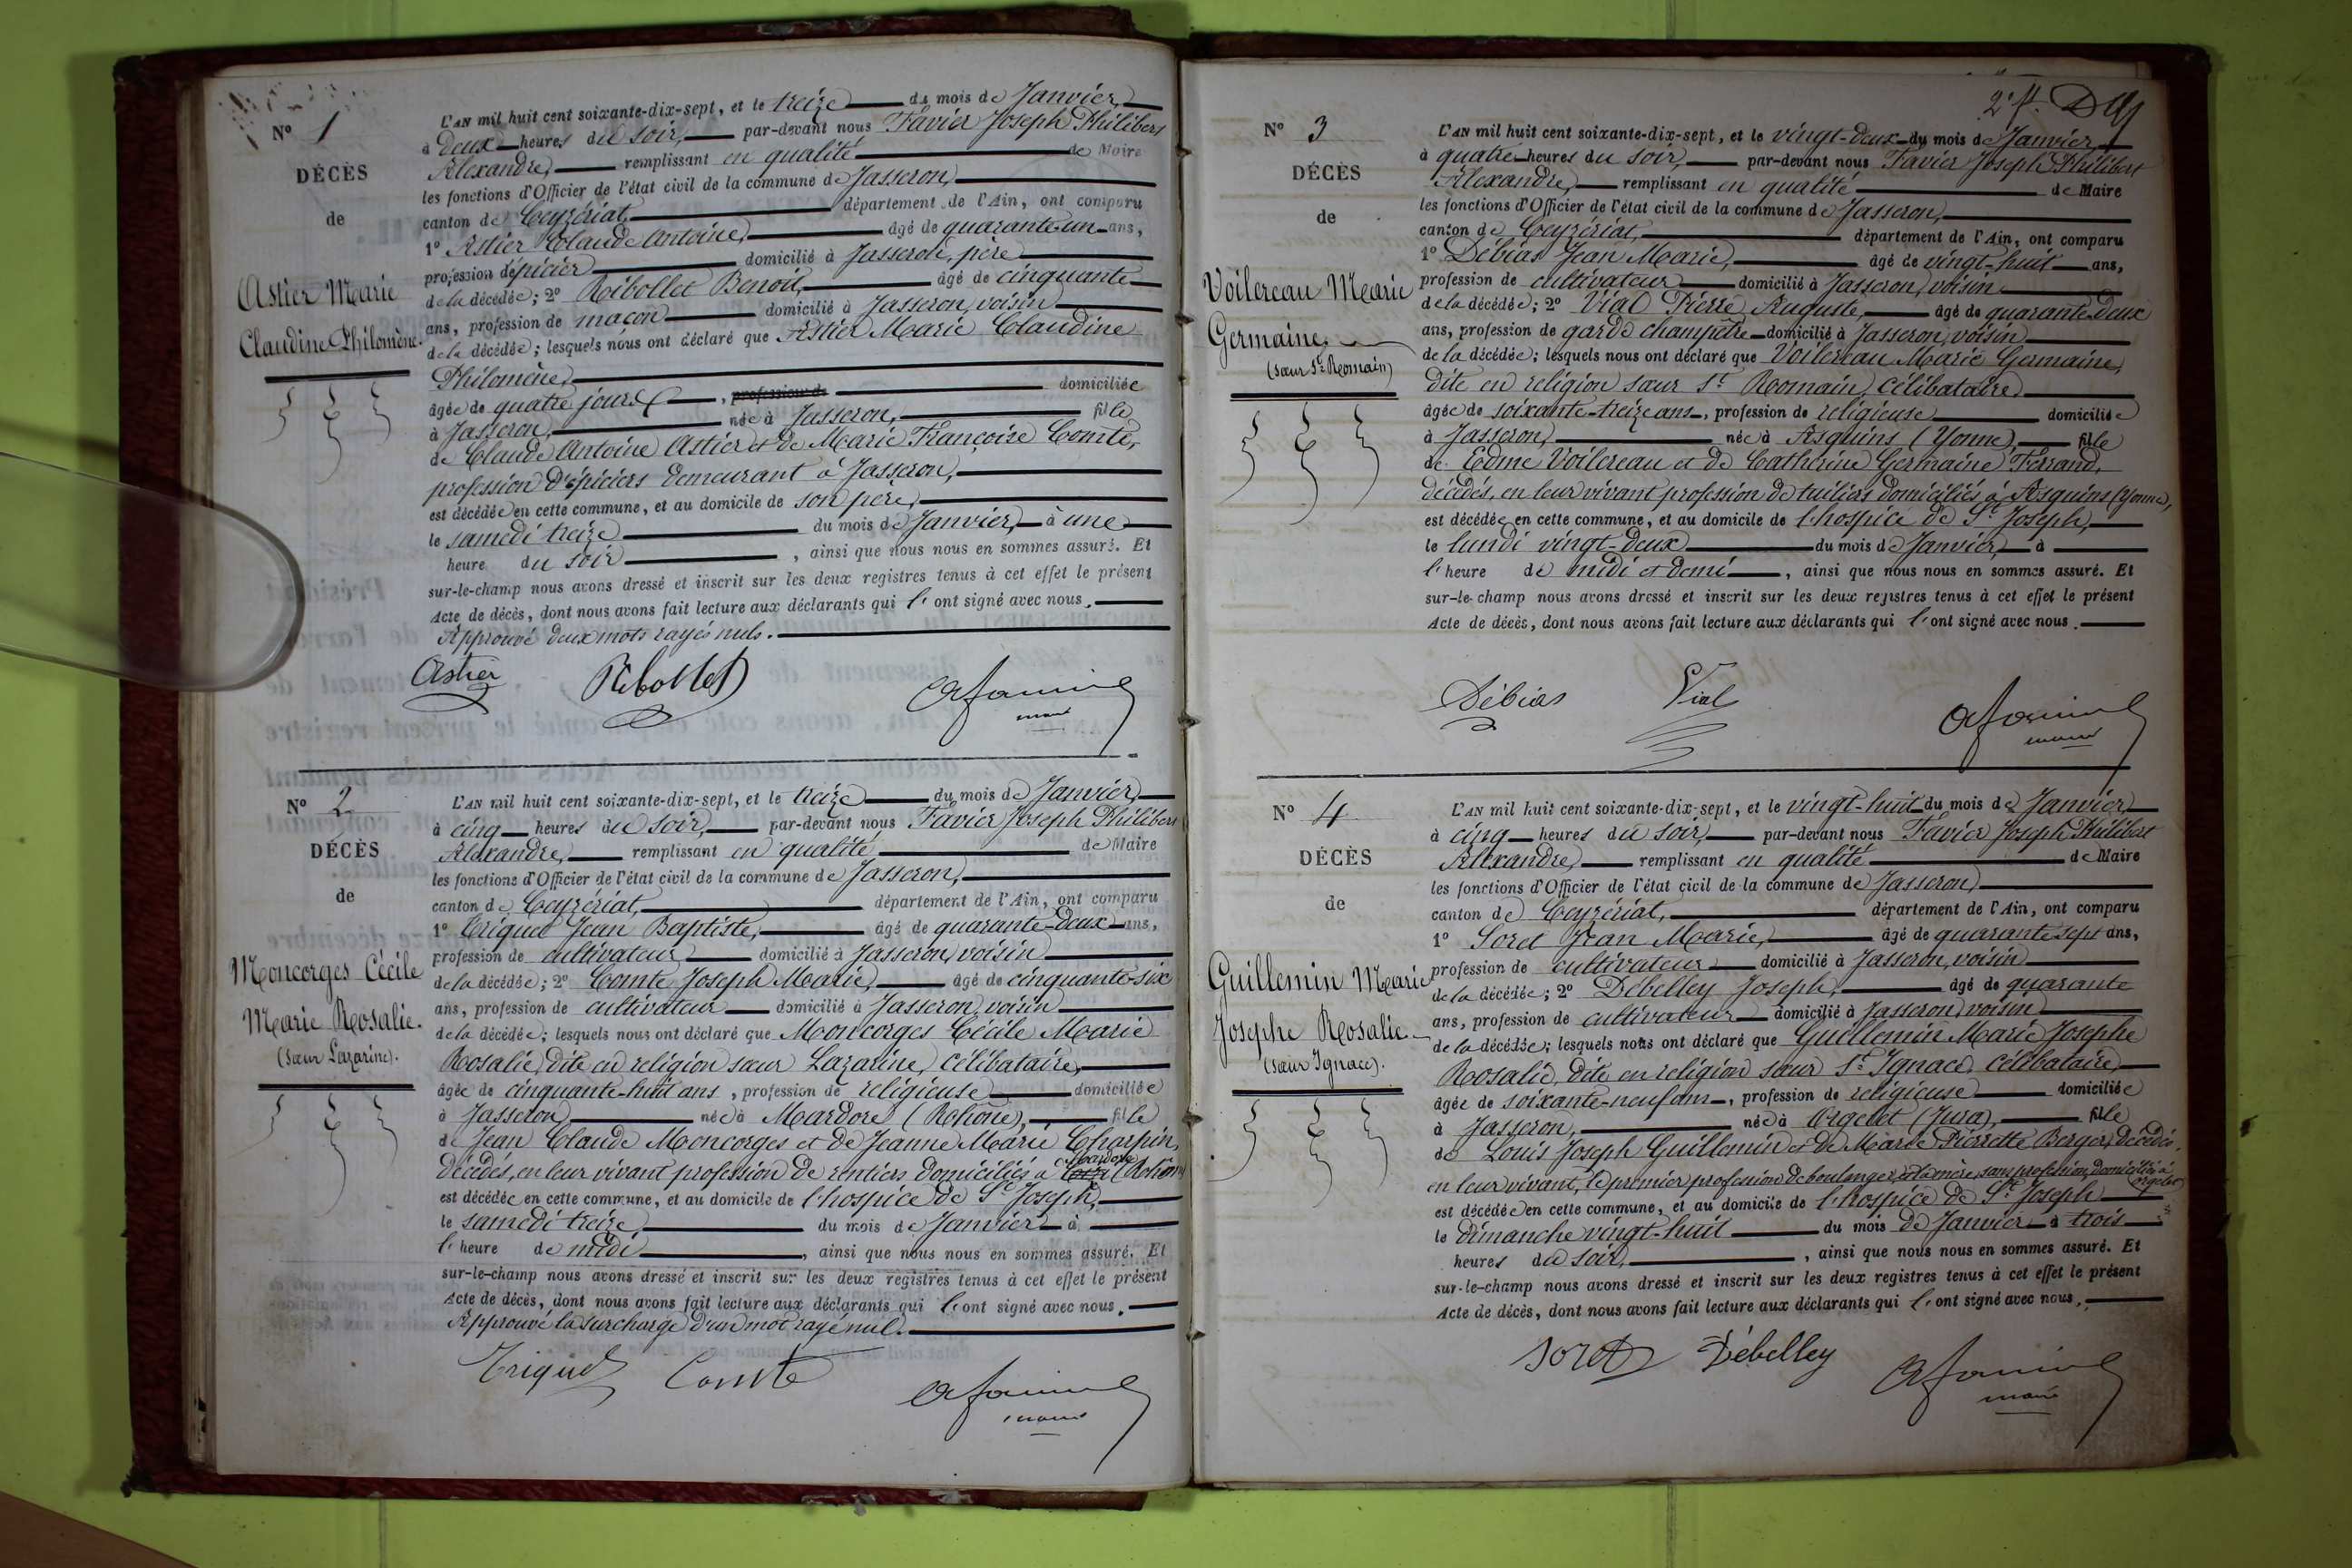 N° 1
DÉCÈS
de
Astier Marie
Claudine Philomène.
L'AN mil huit cent soixante-dix-sept, et le treize du mois de Janvier,
à deux heures du soir, par-devant nous Favier Joseph Philibert
Alexandre, remplissant en qualité de Maire
les fonctions d'Officier de l'état civil de la commune de Jasseron,
canton de Ceyzériat, département de l'Ain, ont comparu
1° Astier Claude Antoine, âgé de quarante-un ans,
profession d'épicier domicilié à Jasseron, père
de la décédée; 2° Ribollet Benoit, âgé de cinquante
ans, profession de maçon domicilié à Jasseron, voisin
de la décédée; lesquels nous ont déclaré que Astier Marie Claudine
Philomène,
âgée de quatre jours, profession de domiciliée
à Jasseron, née à Jasseron, fille
de Claude Antoine Astier et de Marie Françoise Comte,
profession d'épiciers demeurant à Jasseron,
est décédée en cette commune, et au domicile de son père,
le samedi treize du mois de Janvier, à une
heure du soir, ainsi que nous nous en sommes assuré. Et
sur-le-champ nous avons dressé et inscrit sur les deux registres tenus à cet effet le présent
Acte de décès, dont nous avons fait lecture aux déclarants qui l'ont signé avec nous.
Approuvé deux mots rayés nuls.
Astier Ribollet
maire
N° 2
DÉCÈS
de
Moncorges Cécile
Marie Rosalie.
(sœur Lazarine).
L'AN mil huit cent soixante-dix-sept, et le treize du mois de Janvier,
à cinq heures du soir, par-devant nous Favier Joseph Philibert
Alexandre, remplissant en qualité de Maire
les fonctions d'Officier de l'état civil de la commune de Jasseron,
canton de Ceyzériat, département de l'Ain, ont comparu
1° Triquet Jean Baptiste, âgé de quarante-deux ans,
profession de cultivateur domicilié à Jasseron, voisin
de la décédée; 2° Comte Joseph Marie, âgé de cinquante-six
ans, profession de cultivateur domicilié à Jasseron, voisin
de la décédée; lesquels nous ont déclaré que Moncorges Cécile Marie
Rosalie, dite en religion sœur Lazarine, célibataire,
âgée de cinquante-huit ans, profession de religieuse domiciliée
à Jasseron, née à Mardore (Rohône), fille
de Jean Claude Moncorges et de Jeanne Marie Charpin,
décédés, en leur vivant profession de rentiers domiciliés à Mardore (Rohône)
est décédée en cette commune, et au domicile de l'hospice de St Joseph,
le samedi treize du mois de Janvier à
l'heure de midi, ainsi que nous nous en sommes assuré. Et
sur-le-champ nous avons dressé et inscrit sur les deux registres tenus à cet effet le présent
Acte de décès, dont nous avons fait lecture aux déclarants qui l'ont signé avec nous.
Approuvé la surcharge d'un mot rayé nul.
Triquet Comte
maire
2e f.
N° 3
DÉCÈS
de
Voilereau Marie
Germaine,
(sœur St Romain)
L'AN mil huit cent soixante-dix-sept, et le vingt-deux du mois de Janvier,
à quatre heures du soir, par-devant nous Favier Joseph Philibert
Alexandre, remplissant en qualité de Maire
les fonctions d'Officier de l'état civil de la commune de Jasseron,
canton de Ceyzériat, département de l'Ain, ont comparu
1° Débias Jean Marie, âgé de vingt-huit ans,
profession de cultivateur domicilié à Jasseron, voisin
de la décédée; 2° Vial Pierre Auguste, âgé de quarante-deux
ans, profession de garde champêtre domicilié à Jasseron, voisin
de la décédée; lesquels nous ont déclaré que Voilereau Marie Germaine,
dite en religion sœur St Romain, célibataire,
âgée de soixante-treize ans, profession de religieuse domiciliée
à Jasseron, née à Asquins (Yonne), fille
de Edme Voilereau et de Catherine Germaine Ferrand,
décédés, en leur vivant profession de tuiliers domiciliés à Asquins (Yonne),
est décédée en cette commune, et au domicile de l'hospice de St Joseph,
le lundi vingt-deux du mois de Janvier, à
l'heure de midi et demi, ainsi que nous nous en sommes assuré. Et
sur-le-champ nous avons dressé et inscrit sur les deux registres tenus à cet effet le présent
Acte de décès, dont nous avons fait lecture aux déclarants qui l'ont signé avec nous.
Débias Vial
maire
N° 4
DÉCÈS
de
Guillemin Marie
Josephe Rosalie.
(sœur Ignace).
L'AN mil huit cent soixante-dix-sept, et le vingt-huit du mois de Janvier
à cinq heures du soir, par-devant nous Favier Joseph Philibert
Alexandre, remplissant en qualité de Maire
les fonctions d'Officier de l'état civil de la commune de Jasseron,
canton de Ceyzériat, département de l'Ain, ont comparu
1° Soret Jean Marie, âgé de quarante sept ans,
profession de cultivateur domicilié à Jasseron, voisin
de la décédée; 2° Débelley Joseph, âgé de quarante
ans, profession de cultivateur domicilié à Jasseron, voisin
de la décédée; lesquels nous ont déclaré que Guillemin Marie Josephe
Rosalie, dite en religion sœur St Ignace, célibataire,
âgée de soixante-neuf ans, profession de religieuse domiciliée
à Jasseron, née à Orgelet (Jura), fille
de Louis Joseph Guillemin et de Marie Pierrette Berger, décédés,
en leur vivant, le premier profession de boulanger et la mère sans profession, domiciliés à Orgelet
est décédée en cette commune, et au domicile de l'hospice de St Joseph
le dimanche vingt-huit du mois de Janvier à trois
heures du soir, ainsi que nous nous en sommes assuré. Et
sur-le-champ nous avons dressé et inscrit sur les deux registres tenus à cet effet le présent
Acte de décès, dont nous avons fait lecture aux déclarants qui l'ont signé avec nous.
Soret Débelley
maire